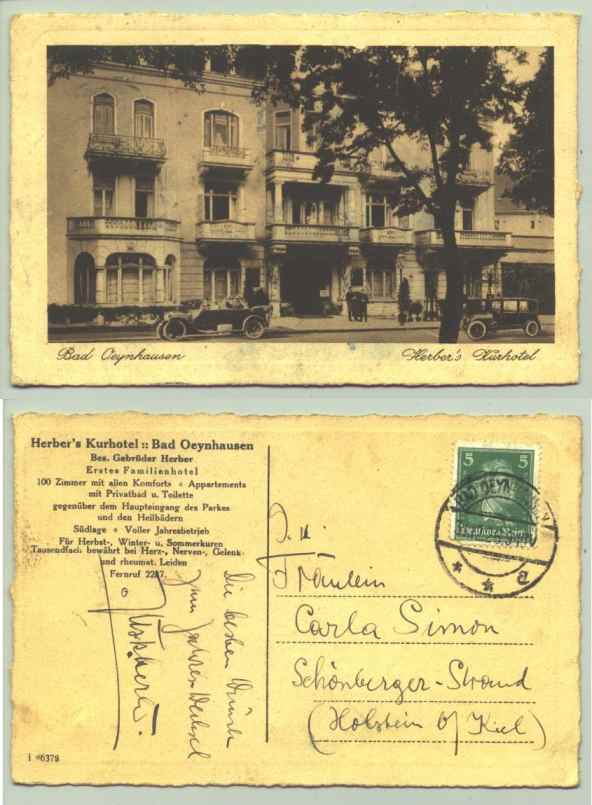 Bad Oeynhausen
Herber's Kurhotel
Herber's Kurhotel :: Bad Oeynhausen
Bes. Gebrüder Herber
Erstes Familienhotel
100 Zimmer mit allen Komforts + Appartements
mit Privatbad u. Toilette
gegenüber dem Haupteingang des Parkes
und den Heilbädern
Südlage + Voller Jahresbetrieb
Für Herbst-, Winter- u. Sommerkuren
Tausendfach bewährt bei Herz-, Nerven-, Gelenk-
und rheumat. Leiden
Fernruf 2247.
Die besten Wünsche
zum Jahreswechsel
i 06378
5 5
Deutsches Reich
BAD OEYNHAUSEN
a
Fräulein
Carla Simon
Schönberger-Strand
(Holstein b/ Kiel)